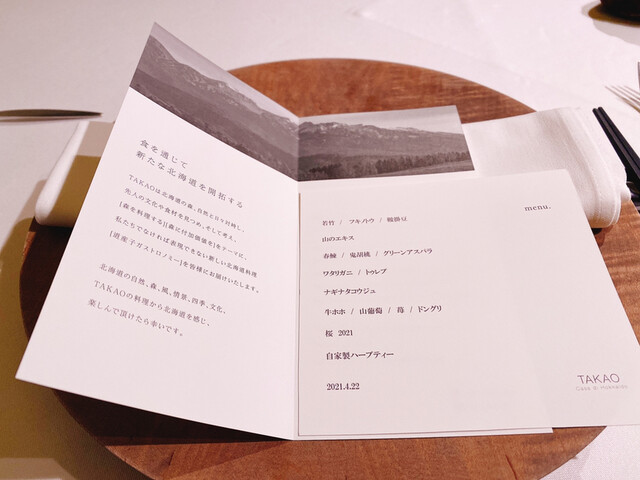 食を通じて
新たな北海道を開拓する
TAKAOは北海道の森、自然と日々対峙し、
先人の文化や食材を見つめ、そして考え、
[森を料理する][森に付加価値を]をテーマに、
私たちでなければ表現できない新しい北海道料理
[道産子ガストロノミー]を皆様にお届けいたします。
北海道の自然、森、風、情景、四季、文化、
TAKAOの料理から北海道を感じ、
楽しんで頂けたら幸いです。
menu.
若竹 / フキノトウ / 鞍掛豆
山のエキス
春鰊 / 鬼胡桃 / グリーンアスパラ
ワタリガニ / トゥレプ
ナギナタコウジュ
牛ホホ / 山葡萄 / 苺 / ドングリ
桜 2021
自家製ハーブティー
2021.4.22
TAKAO